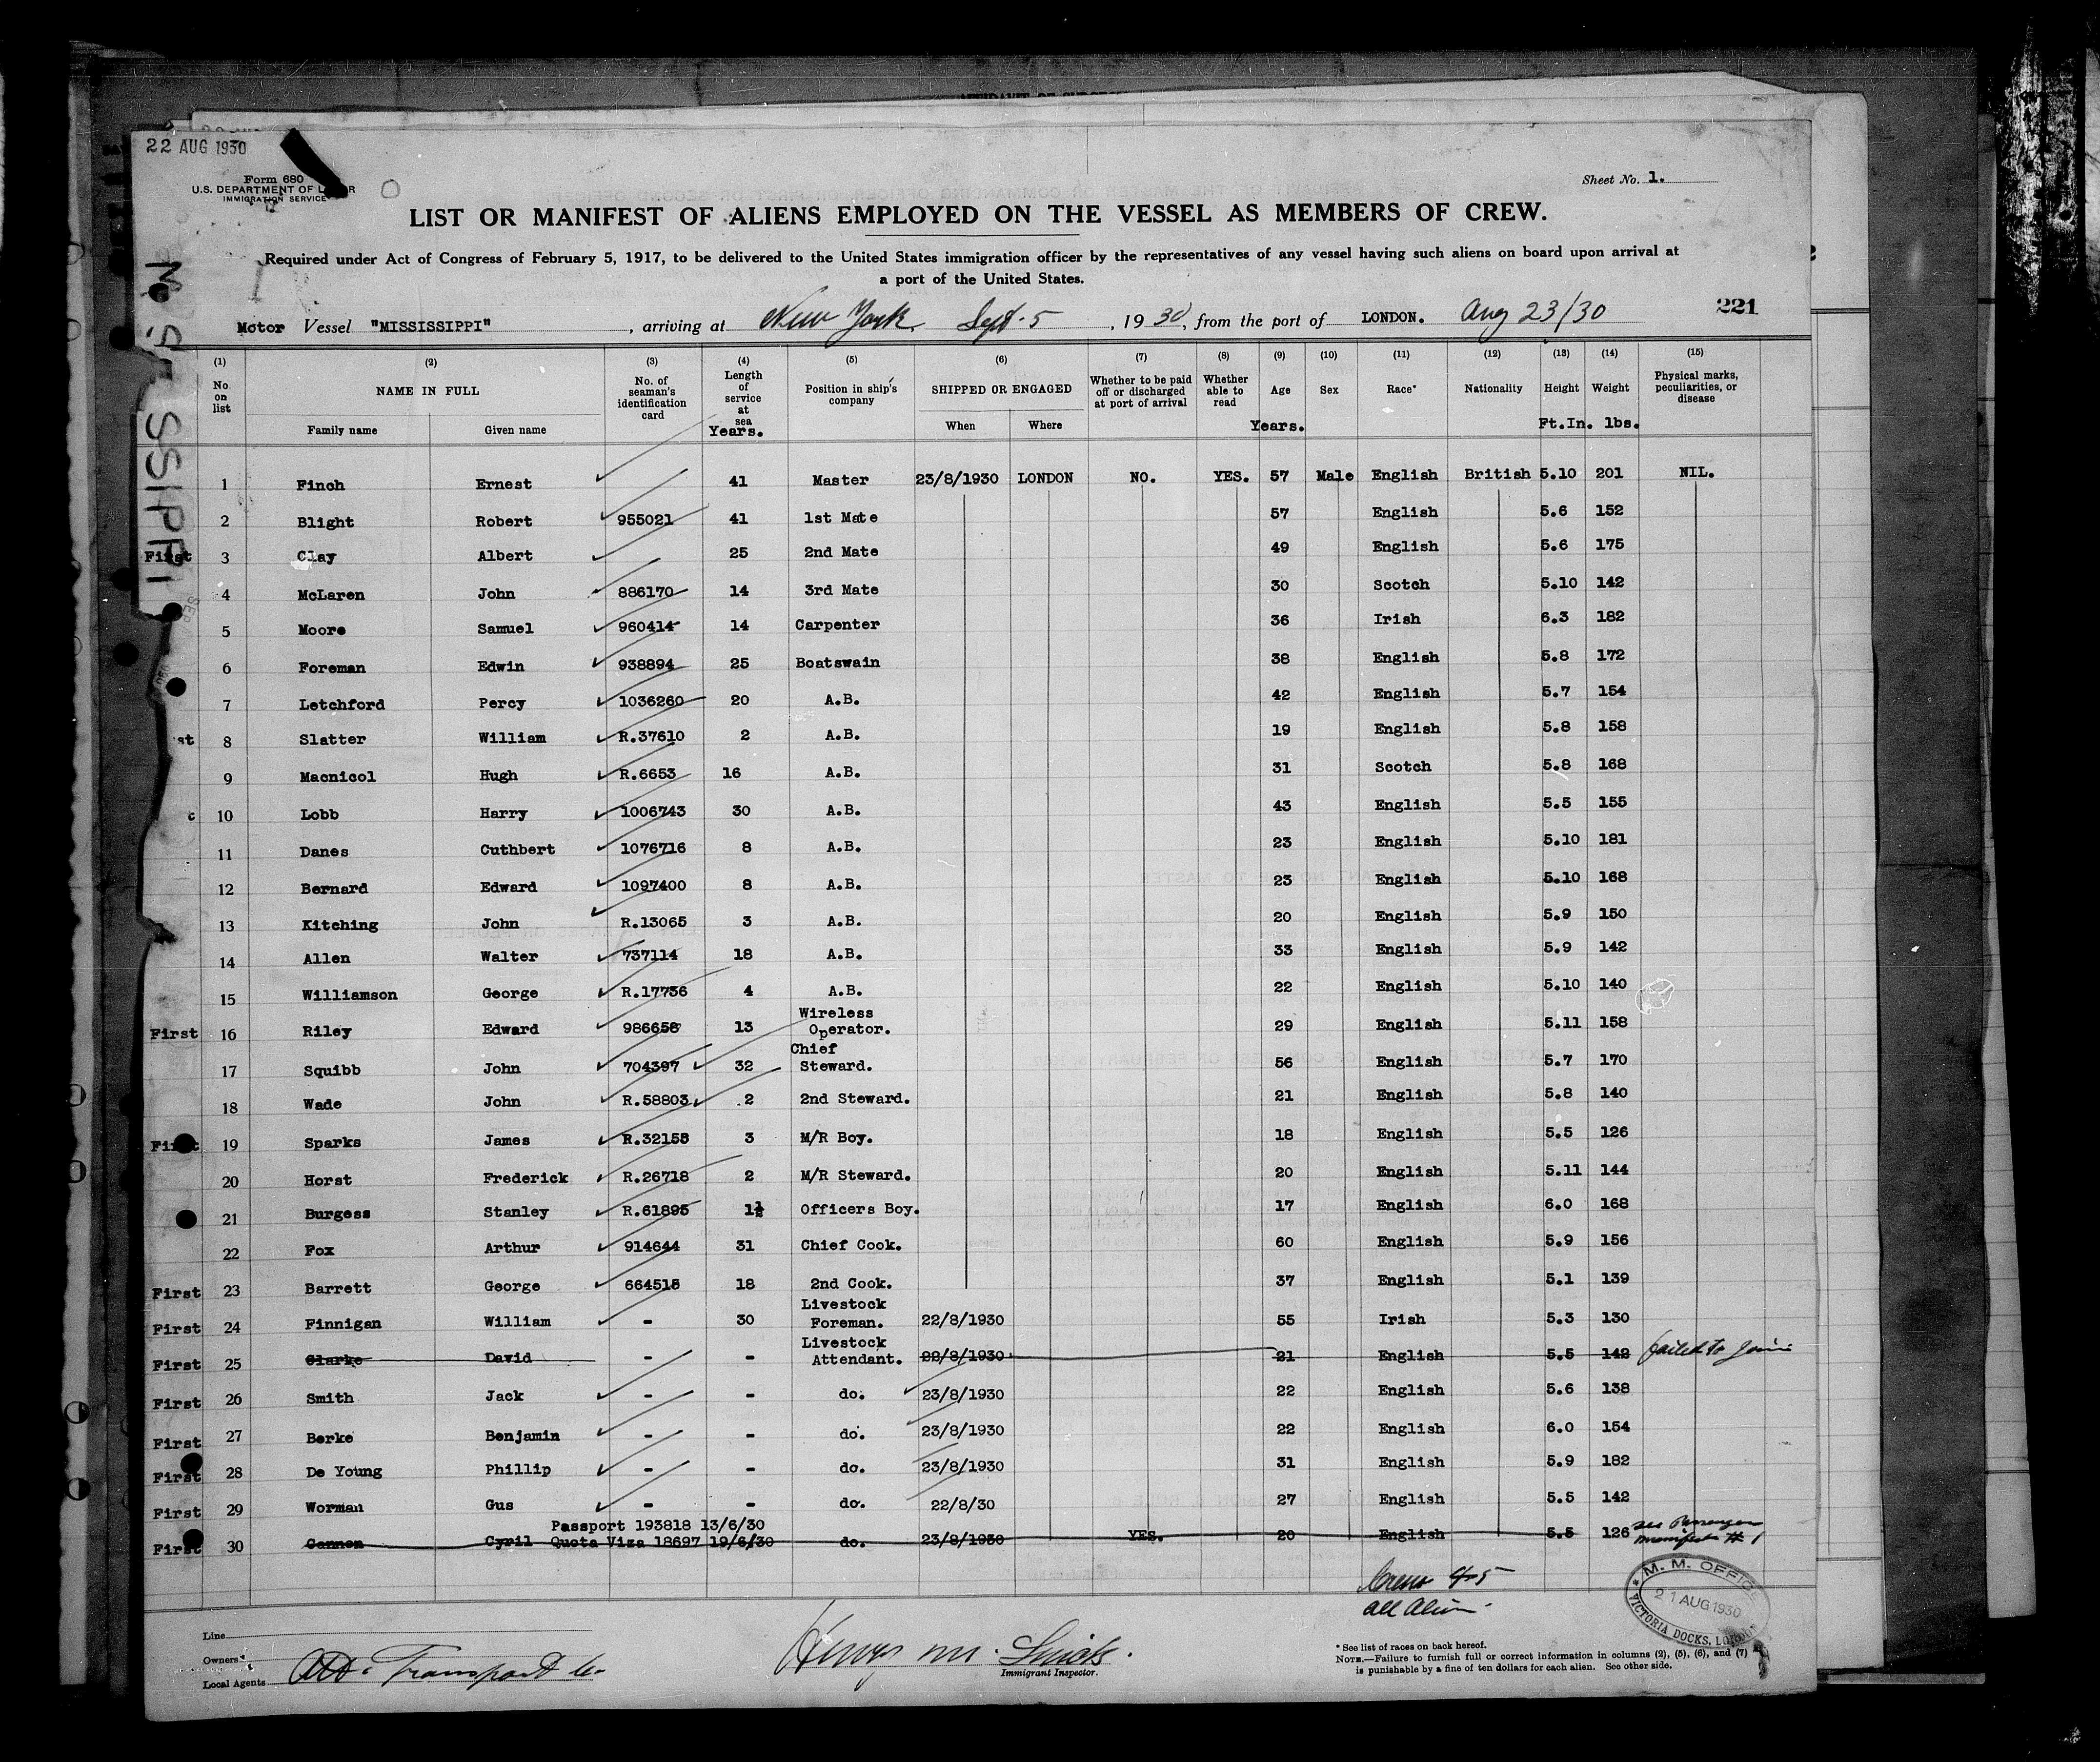 22 AUG 1930
Form 680
U.S. DEPARTMENT OF
IMMIGRATION SERVICE
Sheet No. 1.
LIST OR MANIFEST OF ALIENS EMPLOYED ON THE VESSEL AS MEMBERS OF CREW.
Required under Act of Congress of February 5, 1917, to be delivered to the United States immigration officer by the representatives of any vessel having such aliens on board upon arrival at
a port of the United States.
221
Motor Vessel "MISSISSIPPI", arriving at New York Sept. 5, 1930, from the port of LONDON. Aug 23/30
(1) (2) (3) (4) (5) (6) (7) (8) (9) (10) (11) (12) (13) (14) (15)
No. on list NAME IN FULL No. of seaman's identification card Length of service at sea Position in ship's company SHIPPED OR ENGAGED Whether to be paid off or discharged at port of arrival Whether able to read Age Sex Race* Nationality Height Weight Physical marks, peculiarities, or disease
Family name Given name Years. When Where Years. Ft.In. lbs.
1 Finch Ernest 41 Master 23/8/1930 LONDON NO. YES. 57 Male English British 5.10 201 NIL.
2 Blight Robert 955021 41 1st Mate 57 English 5.6 152
First 3 Clay Albert 25 2nd Mate 49 English 5.6 175
4 McLaren John 886170 14 3rd Mate 30 Scotch 5.10 142
5 Moore Samuel 960414 14 Carpenter 36 Irish 6.3 182
6 Foreman Edwin 938894 25 Boatswain 38 English 5.8 172
7 Letchford Percy 1036260 20 A.B. 42 English 5.7 154
st 8 Slatter William R.37610 2 A.B. 19 English 5.8 158
9 Macnicol Hugh R.6653 16 A.B. 31 Scotch 5.8 168
10 Lobb Harry 1006743 30 A.B. 43 English 5.5 155
11 Danes Cuthbert 1076716 8 A.B. 23 English 5.10 181
12 Bernard Edward 1097400 8 A.B. 23 English 5.10 168
13 Kitching John R.13065 3 A.B. 20 English 5.9 150
14 Allen Walter 737114 18 A.B. 33 English 5.9 142
15 Williamson George R.17736 4 A.B. 22 English 5.10 140
First 16 Riley Edward 986658 13 Wireless Operator. 29 English 5.11 158
17 Squibb John 704397 32 Chief Steward. 56 English 5.7 170
18 Wade John R.58803 2 2nd Steward. 21 English 5.8 140
First 19 Sparks James R.32158 3 M/R Boy. 18 English 5.5 126
20 Horst Frederick R.26718 2 M/R Steward. 20 English 5.11 144
21 Burgess Stanley R.61895 1½ Officers Boy. 17 English 6.0 168
22 Fox Arthur 914644 31 Chief Cook. 60 English 5.9 156
First 23 Barrett George 664515 18 2nd Cook. 37 English 5.1 139
First 24 Finnigan William - 30 Livestock Foreman. 22/8/1930 55 Irish 5.3 130
First 25 Clarke David - - Livestock Attendant. 22/8/1930 21 English 5.5 142 failed to join
First 26 Smith Jack - - do. 23/8/1930 22 English 5.6 138
First 27 Berke Benjamin - - do. 23/8/1930 22 English 6.0 154
First 28 De Young Phillip - - do. 23/8/1930 31 English 5.9 182
First 29 Worman Gus - - do. 22/8/30 27 English 5.5 142
Passport 193818 13/6/30
First 30 Cannon Cyril Quota Visa 18697 19/6/30 do. 23/8/1930 YES. 20 English 5.5 126 see Passenger manifest # 1
Crew 45
all alien
M. M. OFFICE
21 AUG 1930
VICTORIA DOCKS, LONDON
Line
Owners
Local Agents Transport Co
Henry M.
Immigrant Inspector.
* See list of races on back hereof.
NOTE.—Failure to furnish full or correct information in columns (2), (5), (6), and (7)
is punishable by a fine of ten dollars for each alien. See other side.